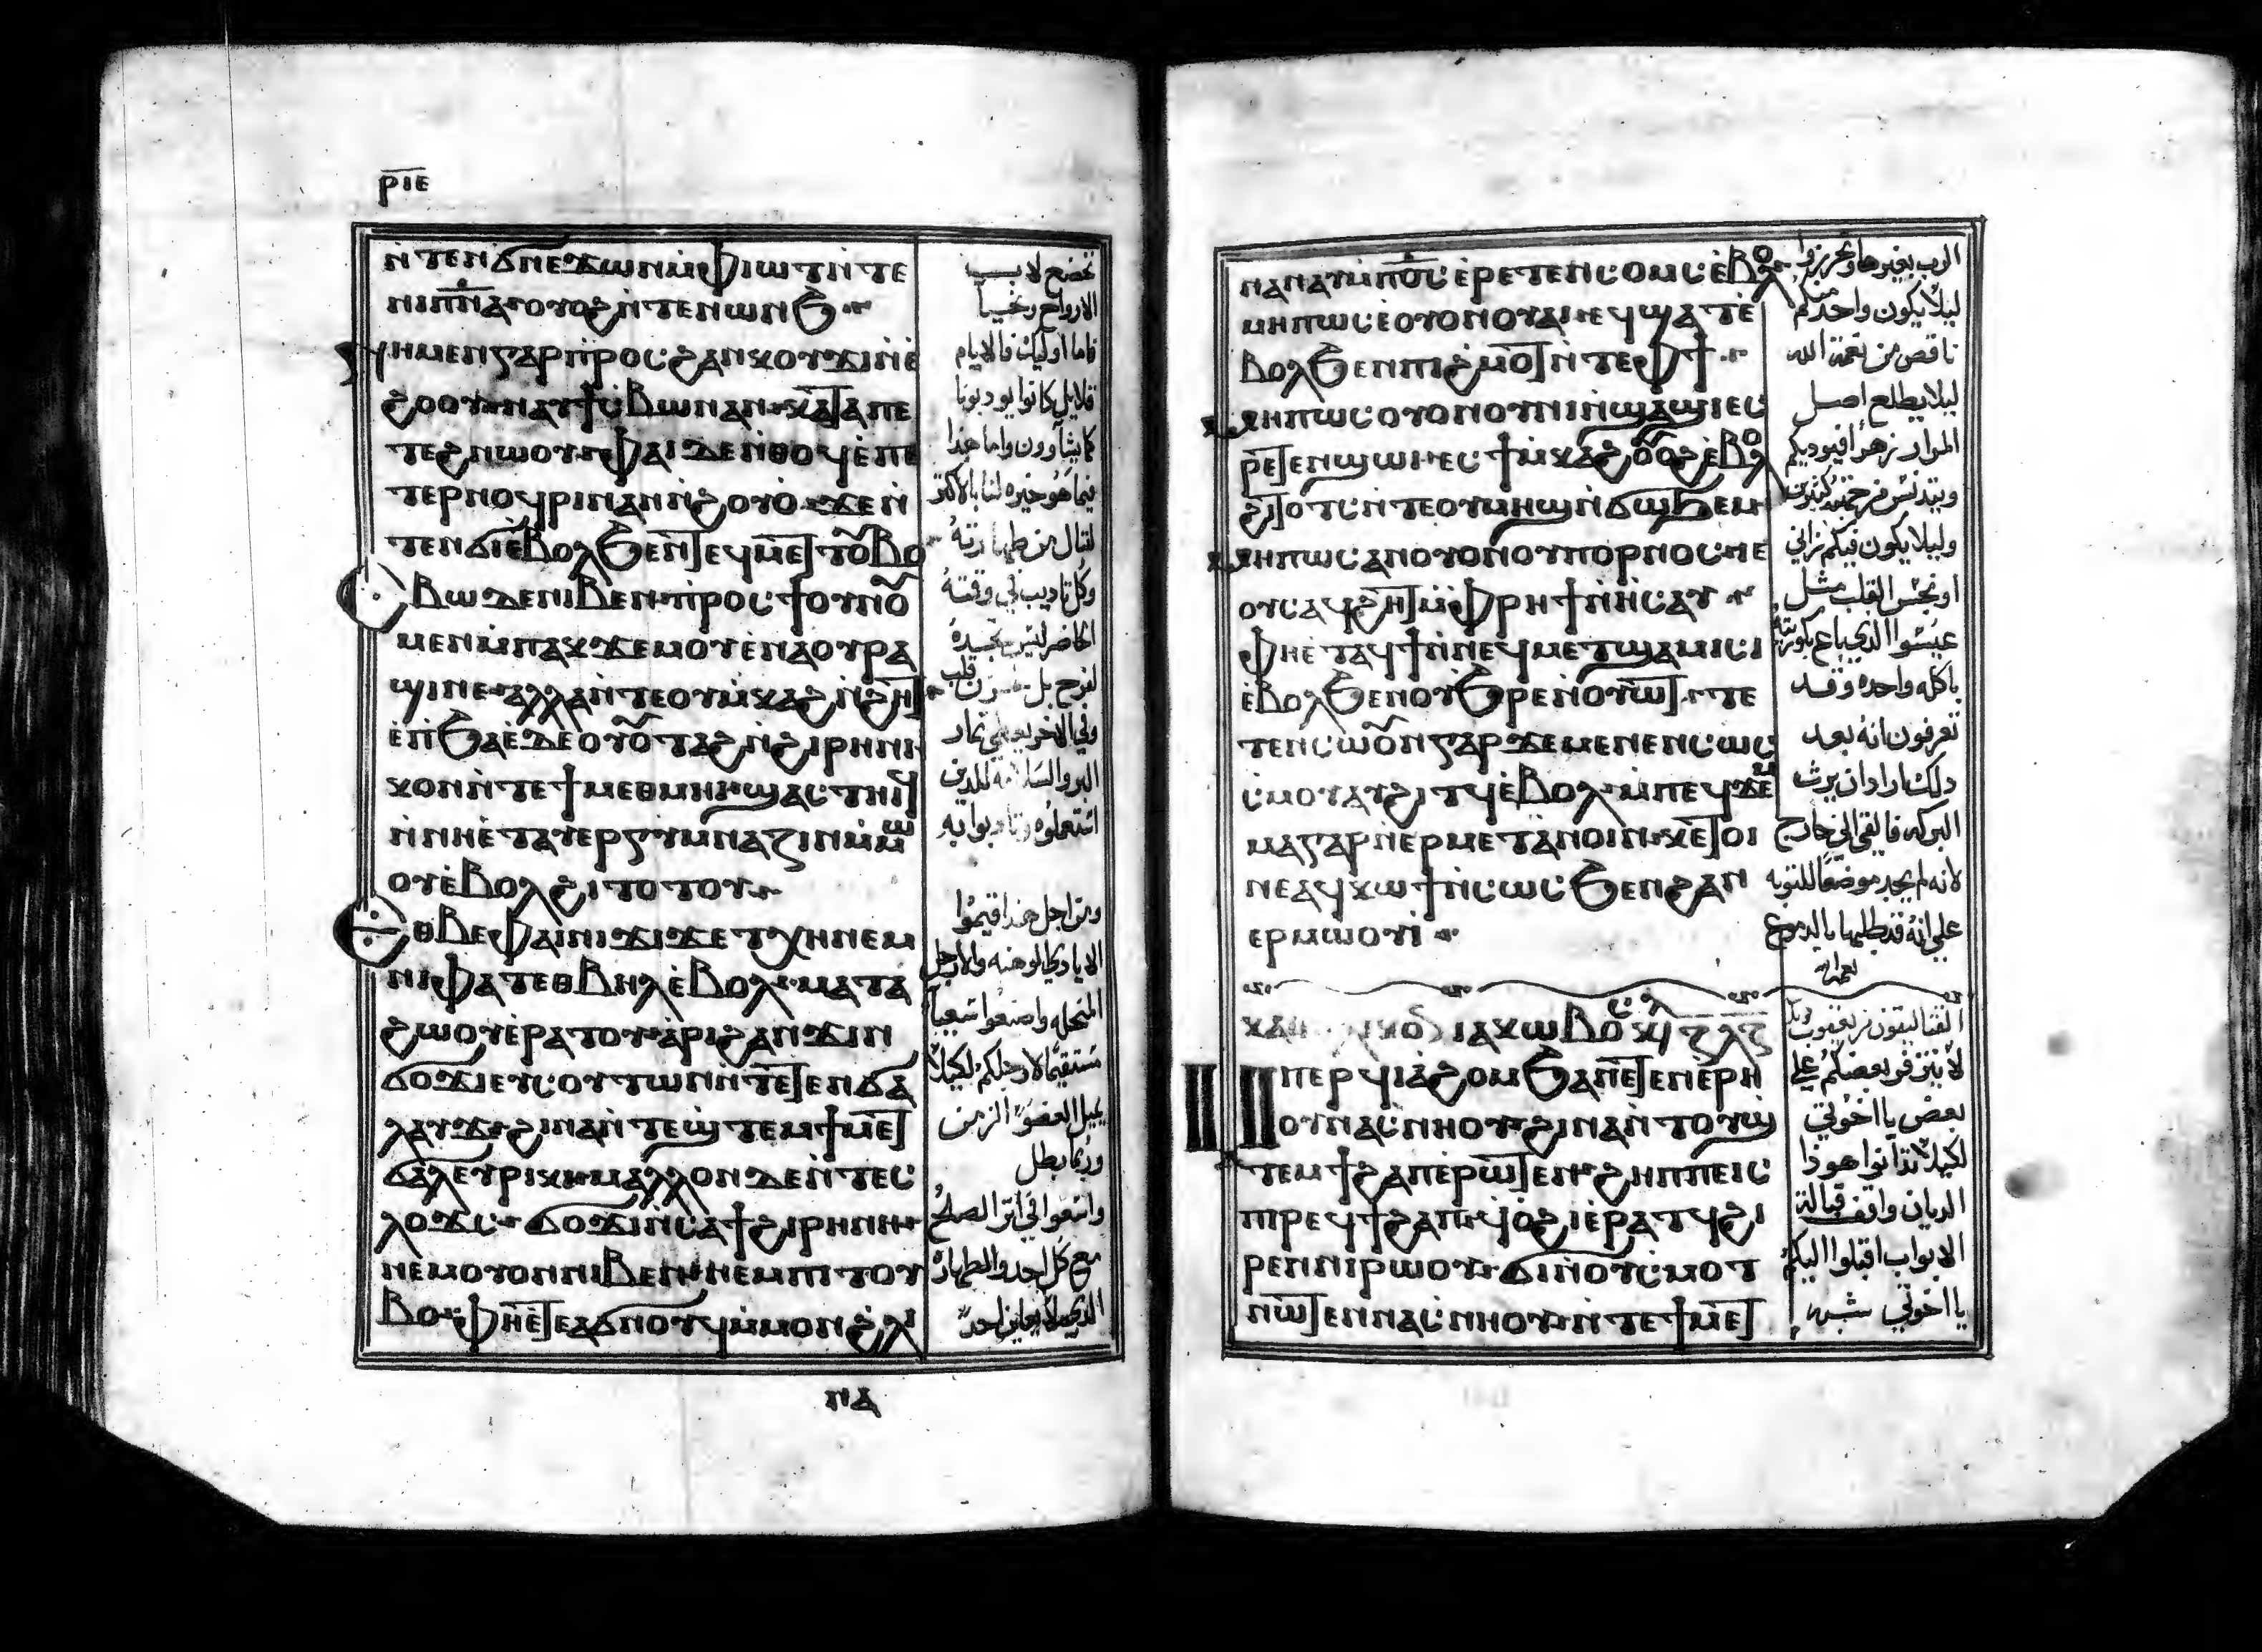 ⲣⲓⲉ
ⲛ̀ⲧⲉⲛϭⲛⲉϫⲱⲛ ⲙ̀ⲫⲓⲱⲧ ⲛ̀ⲧⲉ
ⲛⲓⲡ̅ⲛ̅ⲁ̅ ⲟⲩⲟϩ ⲛ̀ⲧⲉⲛⲱⲛϧ
ⲛⲏ ⲙⲉⲛ ⲅⲁⲣ ⲡ̀ⲣⲟⲥ ϩⲁⲛⲕⲟⲩϫⲓ ⲛ̀ⲉ̀
ϩⲟⲟⲩ ⲛⲁⲩϯⲥ̀ⲃⲱ ⲛⲁⲛ ⲕⲁⲧⲁ ⲡⲉ
ⲧⲉϩⲛⲱⲟⲩ ⲫⲁⲓ ⲇⲉ ⲛ̀ⲑⲟϥ ⲉ̀ⲡⲉ
ⲧⲉⲣⲛⲟϥⲣⲓ ⲛⲁⲛ ⲛ̀ϩⲟⲩⲟ̀ ϫⲉ ⲛ̀
ⲧⲉⲛϭⲓ ⲉ̀ⲃⲟⲗ ϧⲉⲛ ⲧⲉϥⲙⲉⲧⲧⲟⲩⲃⲟ
ⲥⲃⲱ ⲇⲉ ⲛⲓⲃⲉⲛ ⲡ̀ⲣⲟⲥ ϯⲟⲩⲛⲟⲩ
ⲙⲉⲛ ⲙ̀ⲡⲁⲕϫⲉⲙⲟⲩ ⲉ̀ⲛⲁⲟⲩⲣⲁ
ϣⲓ ⲛⲉ ⲁⲗⲗⲁ ⲛ̀ⲧⲉ ⲟⲩⲙ̀ⲕⲁϩ ⲛ̀ϩⲏⲧ
ⲉ̀ⲡ̀ϧⲁⲉ̀ ⲇⲉ ⲟⲩⲟⲩⲧⲁϩ ⲛ̀ϩⲓⲣⲏⲛⲓ
ⲕⲟⲛ ⲛ̀ⲧⲉ ϯⲙⲉⲑⲙⲏⲓ ϣⲁⲥⲧⲏⲓϥ
ⲛ̀ⲛⲏⲉ̀ⲧⲁⲩⲉⲣⲅⲩⲙⲛⲁⲍⲓⲛ ⲙ̀ⲙⲱ
ⲟⲩ ⲉ̀ⲃⲟⲗ ϩⲓⲧⲟⲧⲟⲩ
ⲉⲑⲃⲉⲫⲁⲓ ⲛⲓϫⲓϫ ⲉⲧⲭⲏ ⲛⲉⲙ
ⲛⲓⲫⲁⲧ ⲉⲑⲃⲏⲗ ⲉ̀ⲃⲟⲗ ⲙⲁⲧⲁ
ϩⲱⲟⲩ ⲉ̀ⲣⲁⲧⲟⲩ ⲁ̀ⲣⲓ ϩⲁⲛϫⲓⲛ
ϭⲟϫⲓ ⲉⲩⲥⲟⲩⲧⲱⲛ ⲛ̀ⲛⲉⲧⲉⲛϭⲁ
ⲗⲁⲩϫ ϩⲓⲛⲁ ⲛ̀ⲧⲉϣⲧⲉⲙ ϯⲙⲉⲧ
ϭⲁⲗⲉ ⲩⲣⲓⲕⲓ ⲙⲁⲗⲗⲟⲛ ⲇⲉ ⲛ̀ⲧⲉⲥ
ⲗⲟϫⲥ ϭⲟϫⲓ ⲛ̀ⲥⲁ ϯϩⲓⲣⲏⲛⲏ
ⲛⲉⲙ ⲟⲩⲟⲛ ⲛⲓⲃⲉⲛ ⲛⲉⲙ ⲡⲓⲧⲟⲩ
ⲃⲟ ⲫⲏⲉ̀ⲧⲉ ⲁϭⲛⲟⲩϥ ⲙ̀ⲙⲟⲛ ϩ̀ⲗⲓ
ⲛⲁ
نخضع لاب
الارواح ونحيا
فاما اوليك فالايام
قلايل كانوا يودبونا
كما يشآوون واما هذا
فيما هو خيره لنا بالاكثر
لننال من طهارته
وكل تاديب في وقته
الحاضر ليس نجده
لفرح بل حزن قلب
وفي الاخر يعطي ثمار
البر والسلامة للدين
استعملوه وتادبوا به
ومن اجل هذا اقيموا
الايادي الوهنه والارجل
المنحله واصنعوا سعياً
مستقيمًا لارجلكم لكيلا
يميل العضو الزمن
وربما بطل
واسعوا في اثر الصلح
مع كل احد والطهاره
الذي لا يعاين احد
ⲛⲁⲛⲁⲩ ⲙ̀ⲡⲟ̅ⲥ̅ ⲉ̀ⲣⲉⲧⲉⲛⲥⲟⲙⲥ ⲉ̀ⲃⲟⲗ
ⲙⲏⲡⲱⲥ ⲉ̀ⲟⲩⲟⲛ ⲟⲩⲁⲓ ⲉϥϣⲁⲧ ⲉ̀
ⲃⲟⲗ ϧⲉⲛ ⲡⲓϩ̀ⲙⲟⲧ ⲛ̀ⲧⲉ ⲫϯ
ⲙⲏⲡⲱⲥ ⲟⲩⲟⲛ ⲟⲩⲛⲓ ⲛ̀ϣⲁϣⲓ ⲉⲥ
ⲣⲉⲧ ⲉⲛϣⲱⲓ ⲉⲥϯⲙ̀ⲕⲁϩ ⲟⲩⲟϩ ⲉ̀ⲃⲟⲗ
ϩⲓⲧⲟⲧⲥ ⲛ̀ⲧⲉ ⲟⲩⲙⲏϣ ⲛ̀ϭⲱϧⲉⲙ
ⲙⲏⲡⲱⲥ ⲁⲛ ⲟⲩⲟⲛ ⲟⲩⲡⲟⲣⲛⲟⲥ ⲓⲉ
ⲟⲩⲥⲁϥϩⲏⲧ ⲙ̀ⲫⲣⲏϯ ⲛ̀ⲏⲥⲁⲩ
ⲫⲏⲉ̀ⲧⲁϥϯ ⲛ̀ⲛⲉϥⲙⲉⲧϣⲁⲙⲓⲥⲓ
ⲉ̀ⲃⲟⲗ ϧⲉⲛ ⲟⲩϧⲣⲉ ⲛ̀ⲟⲩⲱⲧ ⲧⲉ
ⲧⲉⲛⲥⲱⲟⲩⲛ ⲅⲁⲣ ϫⲉ ⲙⲉⲛⲉⲛⲥⲱⲥ
ⲥ̀ⲙⲟⲩ ⲁⲩϩⲓⲧϥ ⲉ̀ⲃⲟⲗ ⲙ̀ⲡⲉϥϫⲉⲙ
ⲙⲁ ⲅⲁⲣ ⲛ̀ⲉⲣⲙⲉⲧⲁⲛⲟⲓⲛ ⲕⲉⲧⲟⲓ
ⲛⲉ ⲁϥⲕⲱϯ ⲛ̀ⲥⲱⲥ ϧⲉⲛ ϩⲁⲛ
ⲉⲣⲙⲱⲟⲩⲓ̀
ⲓⲁⲕⲱⲃⲟⲥ
ⲙ̀ⲡⲉⲣϥⲓⲁ̀ϩⲟⲙ ϧⲁ ⲛⲉⲧⲉⲛⲉ̀ⲣⲏ
ⲟⲩ ⲛⲁⲥ̀ⲛⲏⲟⲩ ϩⲓⲛⲁ ⲛ̀ⲧⲟⲩϣ
ⲧⲉⲙϯϩⲁⲡ ⲉ̀ⲣⲱⲧⲉⲛ ϩⲏⲡⲡⲉ ⲓⲥ
ⲡⲓⲣⲉϥϯϩⲁⲡ ϥ̀ⲟϩⲓ ⲉ̀ⲣⲁⲧϥ ϩⲓ
ⲣⲉⲛ ⲛⲓⲣⲱⲟⲩ ϭⲓ ⲛ̀ⲟⲩⲥ̀ⲙⲟⲧ
ⲛⲱⲧⲉⲛ ⲛⲁⲥ̀ⲛⲏⲟⲩ ⲛ̀ⲧⲉ ϯⲙⲉⲧ
الرب بغيرها
ليلا يكون واحد منكم
ناقص من نعمة الله
ليلا يطلع اصل
المرار زهرا فيوديكم
ويتدنس من جهته كثيرين
وليلا يكون فيكم زاني
او نجس القلب مثل
عيسوا الذي باع بكوريته
باكله واحده وقد
تعرفون انه بعد
ذلك اراد ان يرث
البركه فالقي الي خارج
لانه لم يجد موضعًا للتوبه
علي انه قد طلبها بالدموع
القتاليقون من يعقوب
لا يتزفر بعضكم علي
بعض يا اخوتي
لكيلا تدانوا هوذا
الديان واقف قبالة
الابواب اقبلوا اليكم
يا اخوتي شبه